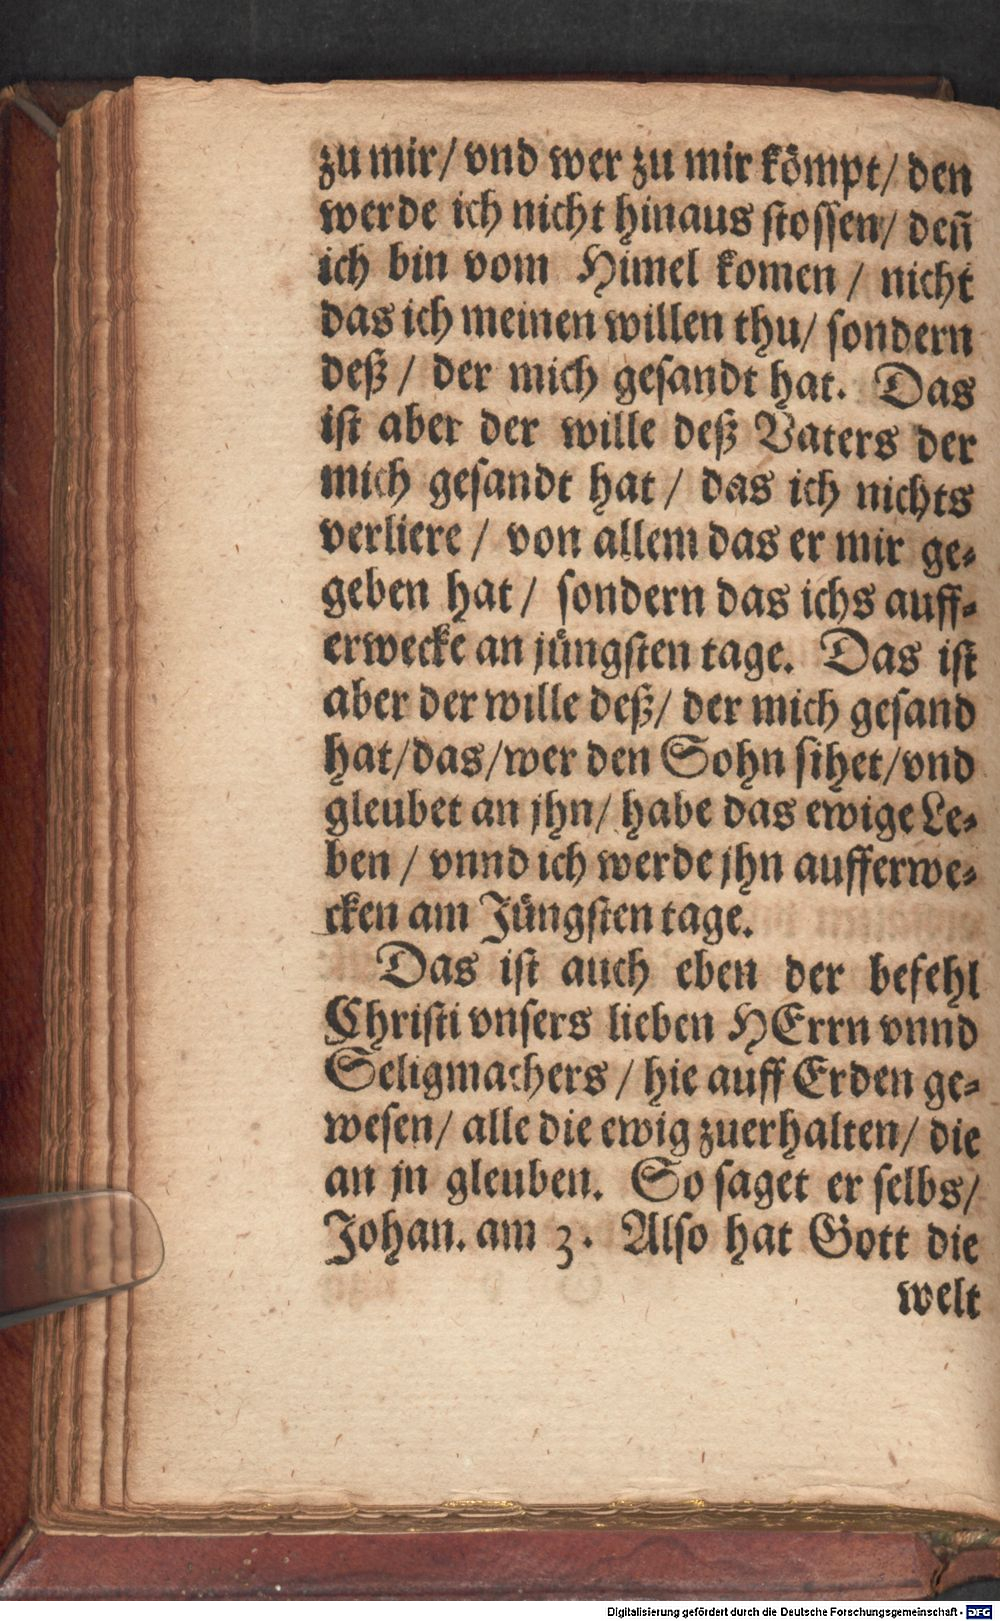 zu mir/ vnd wer zu mir koͤmpt/ den
werde ich nicht hinaus stossen/ deñ
ich bin vom Himel komen / nicht
das ich meinen willen thu/ sondern
deß / der mich gesandt hat. Das
ist aber der wille deß Vaters der
mich gesandt hat / das ich nichts
verliere / von allem das er mir ge⸗
geben hat / sondern das ichs auff⸗
erwecke an juͤngsten tage. Das ist
aber der wille deß/ der mich gesand
hat/das/wer den Sohn sihet/vnd
gleubet an jhn/ habe das ewige Le⸗
ben / vnnd ich werde jhn aufferwe⸗
cken am Juͤngsten tage.
Das ist auch eben der befehl
Christi vnsers lieben HErrn vnnd
Seligmachers / hie auff Erden ge⸗
wesen/ alle die ewig zuerhalten/ die
an jn gleuben. So saget er selbs/
Johan. am 3. Also hat Gott die
welt
Digitalisierung gefördert durch die Deutsche Forschungsgemeinschaft - DFG